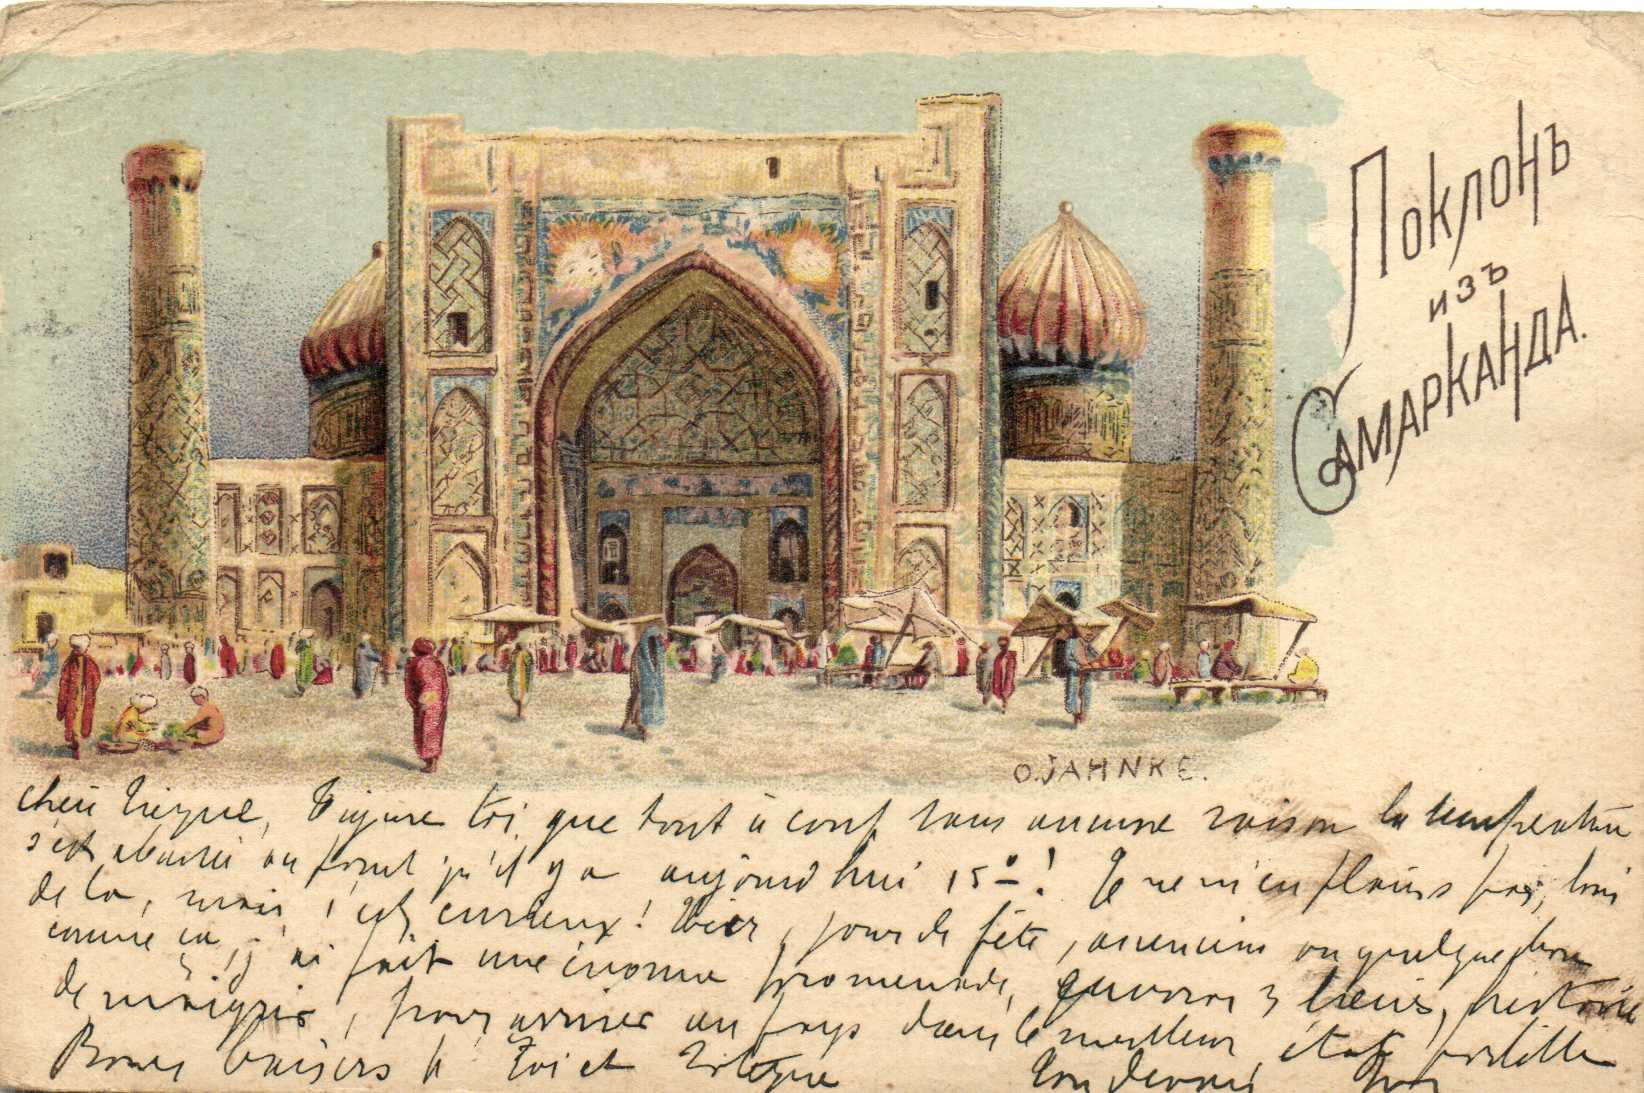 Поклонъ
изъ
Самарканда.
O. JAHNKE.
Figure toi que tout à coup sans aucune raison la température
s'est abaissée au point qu'il y a aujourd'hui 15°! Je ne m'en plains pas, loin
de là, mais c'est curieux! Hier, jour de fête, ou quelque chose
comme ça, j'ai fait une énorme promenade,
de maigrir, pour arriver au pays dans le meilleur état possible
Bons baisers à toi et
Ton